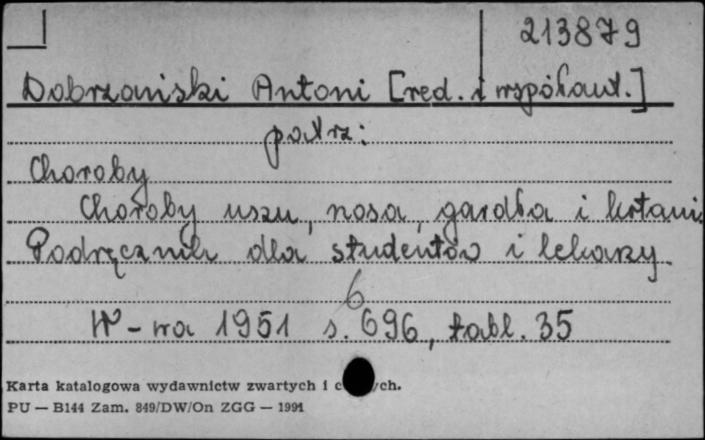 213879
Dobrzański Antoni [red. i współaut.]
patrz:
Choroby
Choroby uszu, nosa, gardła i krtani.
Podręcznik dla studentów i lekarzy.
6
W-wa 1951 s. 696, tabl. 35
Karta katalogowa wydawnictw zwartych i ch.
PU — B144 Zam. 849/DW/On ZGG — 1991